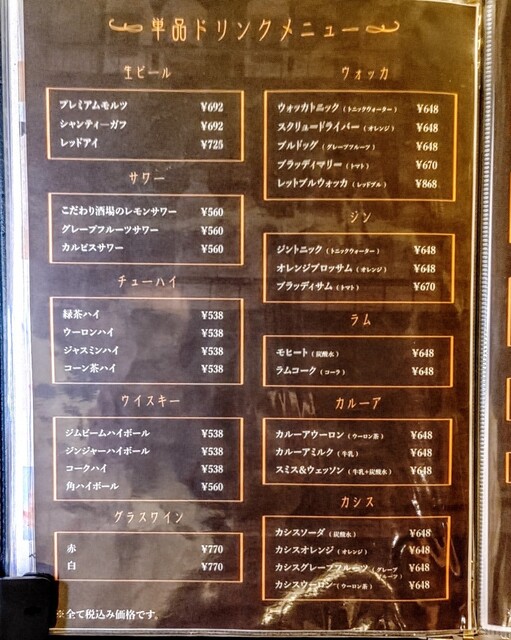 単品ドリンクメニュー
生ビール
プレミアムモルツ ¥692
シャンティーガフ ¥692
レッドアイ ¥725
サワー
こだわり酒場のレモンサワー ¥560
グレープフルーツサワー ¥560
カルピスサワー ¥560
チューハイ
緑茶ハイ ¥538
ウーロンハイ ¥538
ジャスミンハイ ¥538
コーン茶ハイ ¥538
ウイスキー
ジムビームハイボール ¥538
ジンジャーハイボール ¥538
コークハイ ¥538
角ハイボール ¥560
グラスワイン
赤 ¥770
白 ¥770
※全て税込み価格です。
ウォッカ
ウォッカトニック（トニックウォーター） ¥648
スクリュードライバー（オレンジ） ¥648
ブルドッグ（グレープフルーツ） ¥648
ブラッディマリー（トマト） ¥670
レットブルウォッカ（レッドブル） ¥868
ジン
ジントニック（トニックウォーター） ¥648
オレンジブロッサム（オレンジ） ¥648
ブラッディサム（トマト） ¥670
ラム
モヒート（炭酸水） ¥648
ラムコーク（コーラ） ¥648
カルーア
カルーアウーロン（ウーロン茶） ¥648
カルーアミルク（牛乳） ¥648
スミス&ウェッソン（牛乳+炭酸水） ¥648
カシス
カシスソーダ（炭酸水） ¥648
カシスオレンジ（オレンジ） ¥648
カシスグレープフルーツ（グレープフルーツ） ¥648
カシスウーロン（ウーロン茶） ¥648